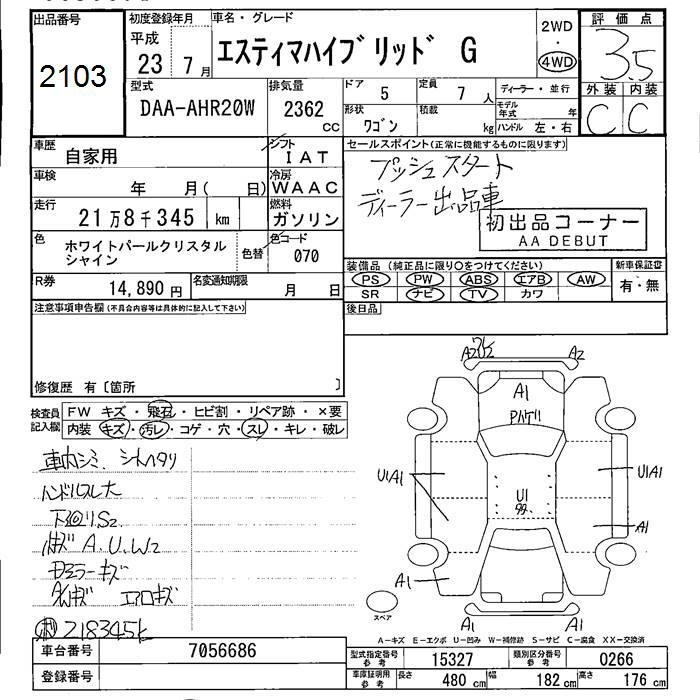 出品番号
2103
初度登録年月
平成
23 7月
車名・グレード
エスティマハイブリッド G
2WD
4WD
評価点
3.5
外装 内装
C C
型式
DAA-AHR20W
排気量
2362
CC
ドア
5
定員
7 人
形状
ワゴン
積載
kg
ディーラー・並行
モデル年式 年
ハンドル 左・右
車歴
自家用
シフト
IAT
車検
年 月( 日)
冷房
WAAC
走行
21万8千345 km
燃料
ガソリン
色
ホワイトパールクリスタル
シャイン
色替
色コード
070
R券
14,890 円
名変通知期限
月 日
セールスポイント(正常に機能するものに限ります)
プッシュスタート
ディーラー出品車
初出品コーナー
AA DEBUT
装備品(純正品に限り○をつけてください)
新車保証書
PS PW ABS エアB AW
有・無
SR ナビ TV カワ
後日品
注意事項申告欄(不具合内容等は具体的に記入して下さい)
修復歴 有〔箇所 〕
検査員
記入欄
FW キズ・飛石・ヒビ割・リペア跡・×要
内装 キズ・汚レ・コゲ・穴・スレ・キレ・破レ
車内シミ、シートヘタリ
ハンドルスレ大
下回りS2
A.U.W2
ドアミラーキズ
エアロキズ
218345k
A2
A2
A1
U1A1
U1A1
U1
A1
A1
A1
A1
スペア
A-キズ E-エクボ U-凹み W-補修跡 S-サビ C-腐食 XX-交換済
車台番号
7056686
登録番号
型式指定番号
参考
15327
類別区分番号
参考
0266
車庫証明用
参考
長さ 480 cm
幅 182 cm
高さ 176 cm